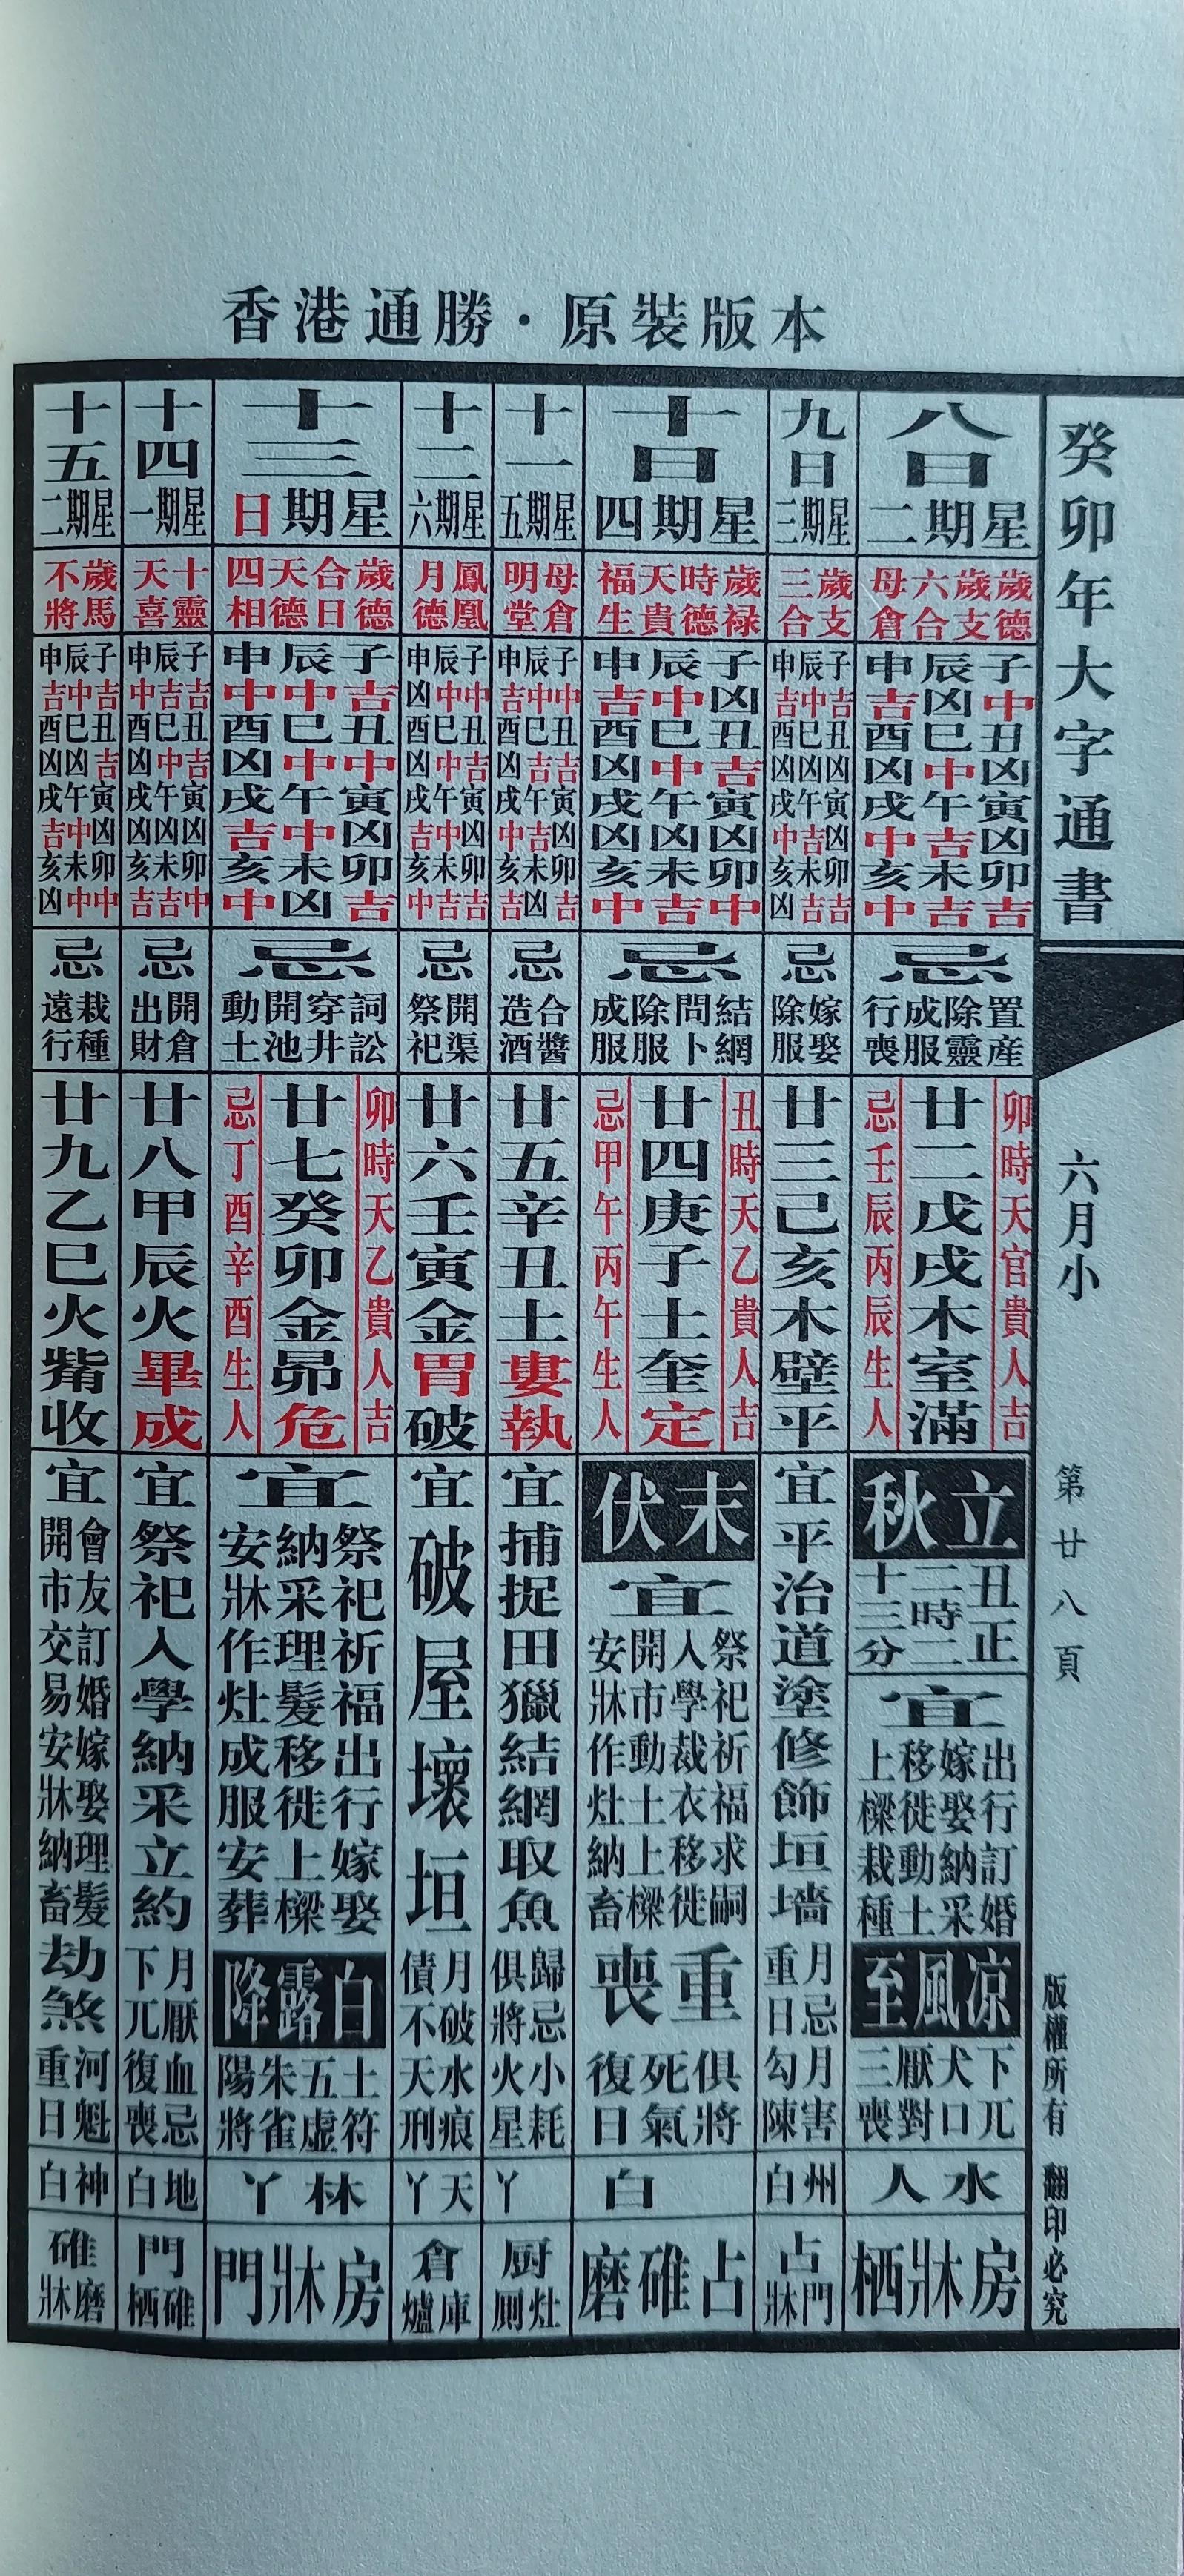 香港通勝・原裝版本
癸卯年大字通書
六月小
第廿八頁
版權所有 翻印必究
八日
星期二
歲德
歲支
六合
母倉
子中丑凶寅凶卯吉
辰凶巳中午吉未吉
申吉酉凶戌中亥中
忌
置產
除靈
成服
行喪
卯時天官貴人吉
廿二戊戌木室滿
忌壬辰丙辰生人
立秋
丑正
二時二
十三分
宜
出行訂婚
嫁娶納采
移徙動土
上樑栽種
凉風至
下兀
犬口
厭對
三喪
水人
房牀栖
九日
星期三
歲支
三合
子吉丑凶寅凶卯吉
辰中巳凶午吉未吉
申吉酉凶戌中亥凶
忌
嫁娶
除服
廿三己亥木壁平
宜平治道塗修飾垣墻
月忌月害
重日勾陳
州白
占
門牀
十日
星期四
歲禄
時德
天貴
福生
子凶丑吉寅凶卯中
辰中巳中午凶未吉
申吉酉凶戌凶亥中
忌
結網
問卜
除服
成服
丑時天乙貴人吉
廿四庚子土奎定
忌甲午丙午生人
末伏
宜
祭祀祈福求嗣
入學裁衣移徙
開市動土上樑
安牀作灶納畜
重喪
俱將
死氣
復日
白
占碓磨
十一
星期五
母倉
明堂
子中丑吉寅凶卯吉
辰中巳吉午吉未凶
申吉酉凶戌中亥吉
忌
合醬
造酒
廿五辛丑土婁執
宜捕捉田獵結網取魚
歸忌小耗
俱將火星
丫
厨
灶厠
十二
星期六
鳳凰
月德
子中丑吉寅凶卯吉
辰中巳中午中未吉
申凶酉凶戌吉亥中
忌
開渠
祭祀
廿六壬寅金胃破
宜破屋壞垣
月破水痕
債不天刑
天丫
倉
庫爐
十三
星期日
歲德
合日
天德
四相
子吉丑中寅凶卯吉
辰中巳中午中未凶
申中酉凶戌吉亥中
忌
詞訟
穿井
開池
動土
卯時天乙貴人吉
廿七癸卯金昴危
忌丁酉辛酉生人
宜
祭祀祈福出行嫁娶
納采理髮移徙上樑
安牀作灶成服安葬
白露降
土符
五虛
朱雀
陽將
林丫
房牀門
十四
星期一
十靈
天喜
子吉丑吉寅凶卯中
辰吉巳中午凶未吉
申中酉凶戌凶亥吉
忌
開倉
出財
廿八甲辰火畢成
宜祭祀入學納采立約
月厭血忌
下兀復喪
地白
門
碓栖
十五
星期二
歲馬
不將
子吉丑吉寅凶卯中
辰中巳凶午中未中
申吉酉凶戌吉亥凶
忌
栽種
遠行
廿九乙巳火觜收
宜
會友訂婚嫁娶理髮
開市交易安牀納畜
劫煞
河魁
重日
神白
碓
磨牀